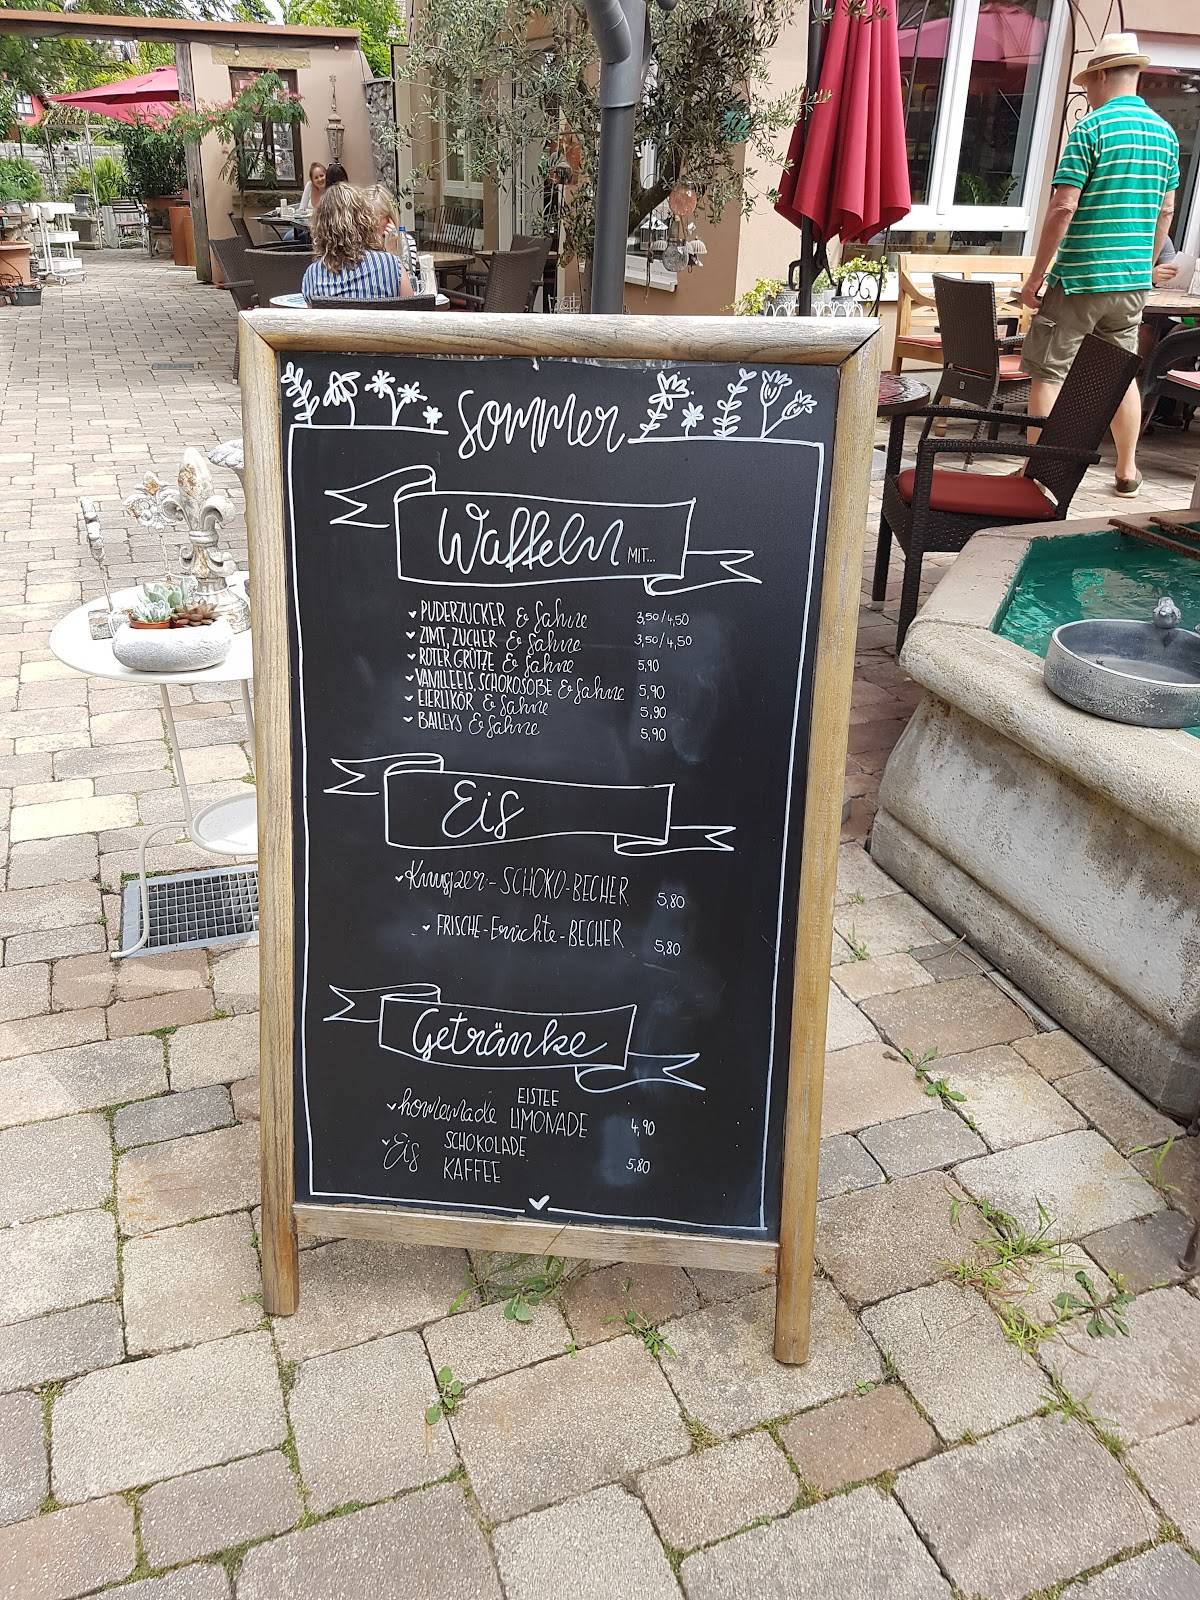 Sommer
Waffeln MIT...
PUDERZUCKER & Sahne 3,50/4,50
ZIMT, ZUCHER & Sahne 3,50/4,50
ROTER GRÜTZE & Sahne 5,90
VANILLEEIS, SCHOKOSOßE & Sahne 5,90
EIERLIKÖR & Sahne 5,90
BAILEYS & Sahne 5,90
Eis
Knusper-SCHOKO-BECHER 5,80
FRISCHE-Früchte-BECHER 5,80
Getränke
EISTEE
homemade LIMONADE 4,90
SCHOKOLADE
Eis KAFFEE 5,80